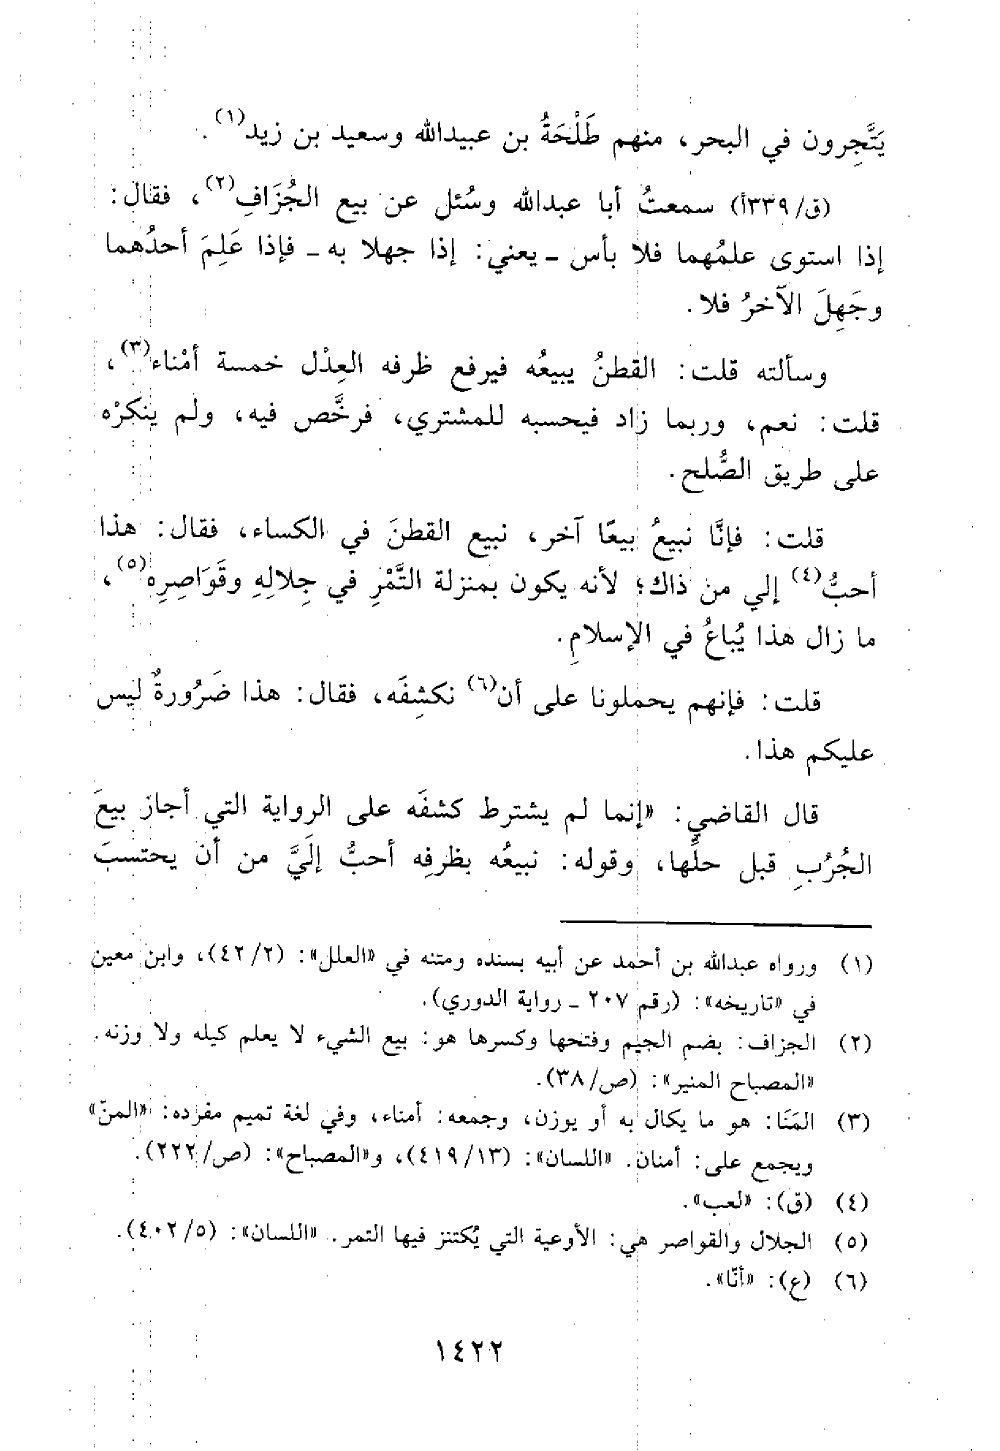 يَتَّجِرون في البحر، منهم طَلْحَةُ بن عبيدالله وسعيد بن زيد(١).
(ق/٣٣٩أ) سمعتُ أبا عبدالله وسُئل عن بيع الجُزَافِ(٢)، فقال:
إذا استوى علمُهما فلا بأس ـ يعني: إذا جهلا به ـ فإذا عَلِمَ أحدُهما
وجَهِلَ الآخرُ فلا.
وسألته قلت: القطنُ يبيعُه فيرفع ظرفه العِدْل خمسة أمْناء(٣)،
قلت: نعم، وربما زاد فيحسبه للمشتري، فرخَّص فيه، ولم ينكرْه
على طريق الصُّلح.
قلت: فإنَّا نبيعُ بيعًا آخر، نبيع القطنَ في الكساء، فقال: هذا
أحبُّ(٤) إلي من ذاك؛ لأنه يكون بمنزلة التَّمْرِ في جِلالِهِ وقَوَاصِرِه(٥)،
ما زال هذا يُباعُ في الإسلامِ.
قلت: فإنهم يحملونا على أن(٦) نكشِفَه، فقال: هذا ضَرُورةٌ ليس
عليكم هذا.
قال القاضي: «إنما لم يشترط كشفَه على الرواية التي أجاز بيعَ
الجُرُبِ قبل حلِّها، وقوله: نبيعُه بظرفِه أحبُّ إلَيَّ من أن يحتسبَ
(١) ورواه عبدالله بن أحمد عن أبيه بسنده ومتنه في «العلل»: (٤٢/٢)، وابن معين
في «تاريخه»: (رقم ٢٠٧ ـ رواية الدوري).
(٢) الجزاف: بضم الجيم وفتحها وكسرها هو: بيع الشيء لا يعلم كيله ولا وزنه.
«المصباح المنير»: (ص/٣٨).
(٣) المَنَا: هو ما يكال به أو يوزن، وجمعه: أمناء، وفي لغة تميم مفرده: «المنّ»
ويجمع على: أمنان. «اللسان»: (٤١٩/١٣)، و«المصباح»: (ص/٢٢٢).
(٤) (ق): «لعب».
(٥) الجلال والقواصر هي: الأوعية التي يُكتنز فيها التمر. «اللسان»: (٤٠٢/٥).
(٦) (ع): «أنّا».
١٤٢٢